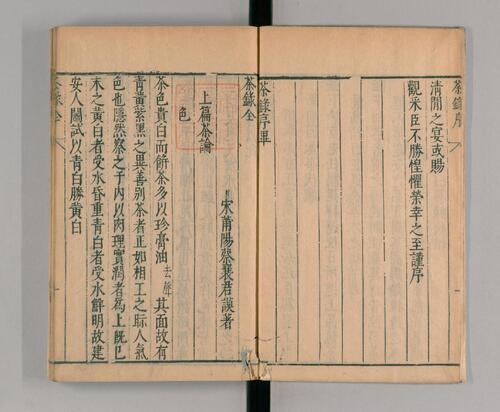 茶錄序
清閒之宴或賜
觀采臣不勝惶懼榮幸之至謹序
茶錄序畢
茶錄全
宋莆陽蔡襄君謨著
上篇茶論
色
茶色貴白而餅茶多以珍膏油去聲其面故有
青黃紫黑之異善別茶者正如相工之眎人氣
色也隱然察之于內以肉理實潤者爲上旣已
末之黃白者受水昏重青白者受水鮮明故建
安人鬬試以青白勝黃白
茶錄全